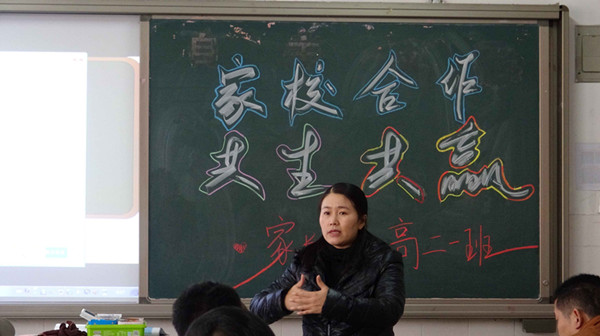 家校合作
共生共赢
家 高二一班